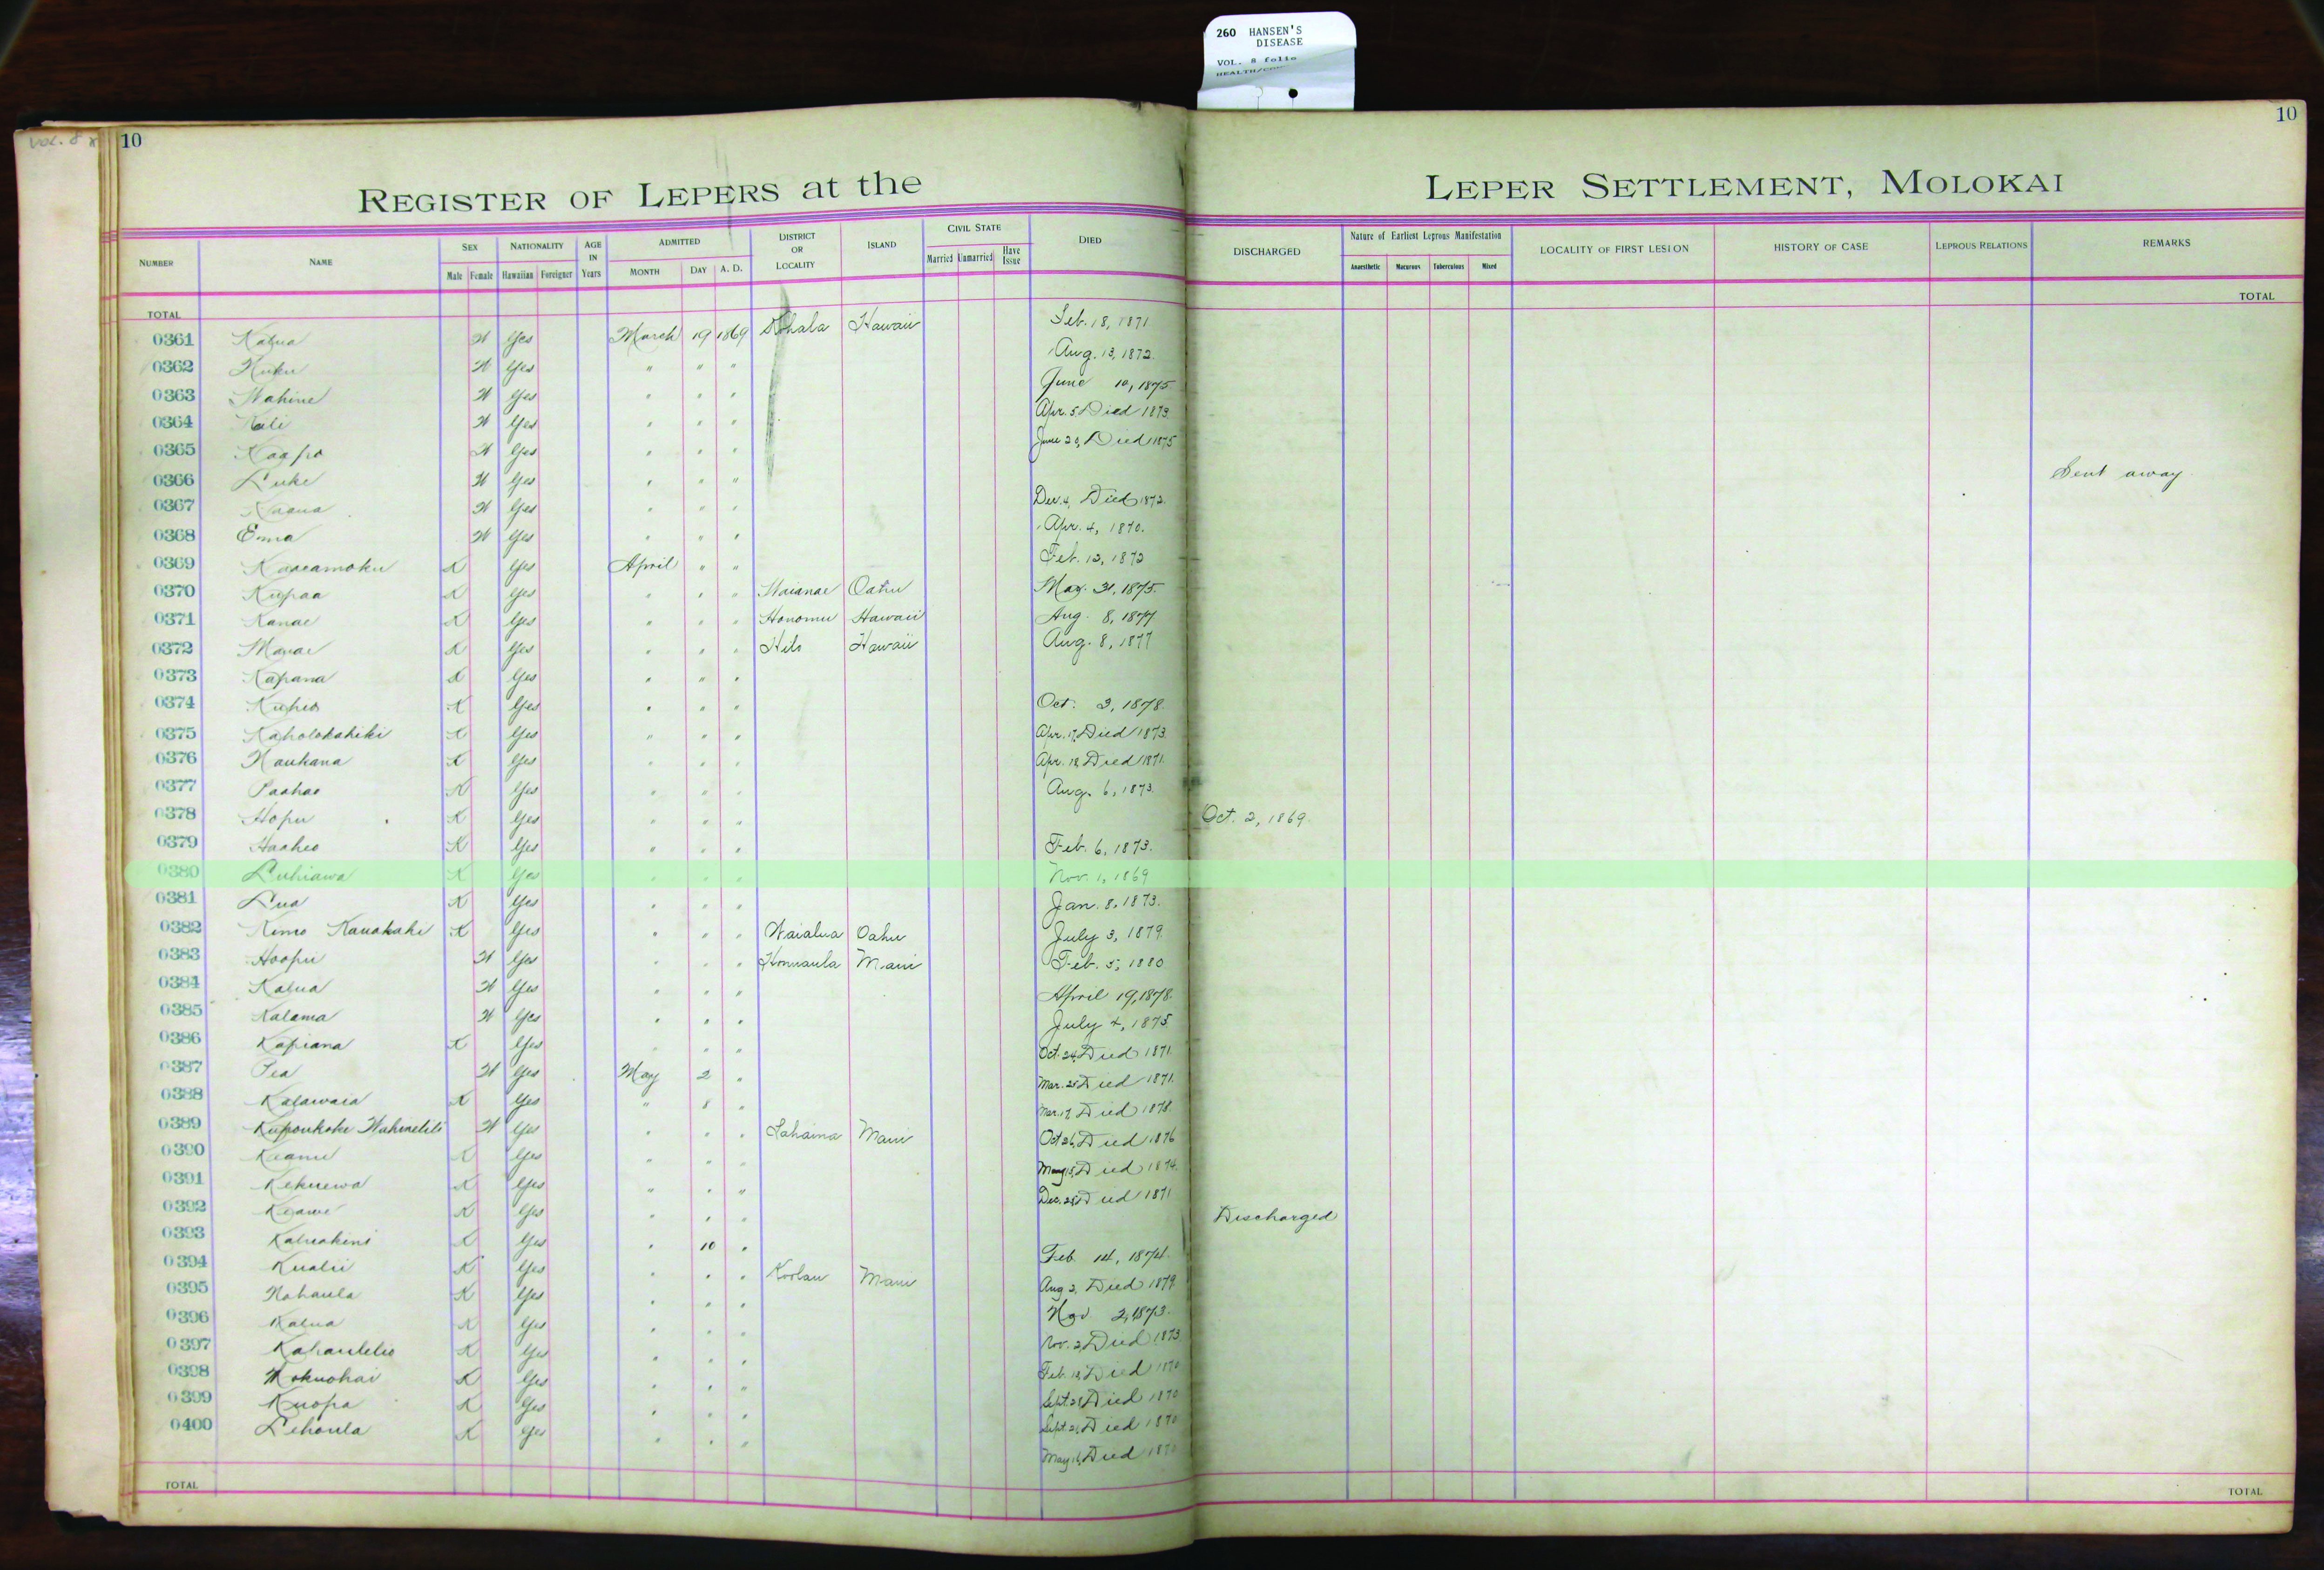 260 HANSEN'S
DISEASE
VOL. 8 folio
VOL. 8
10
10
REGISTER OF LEPERS at the LEPER SETTLEMENT, MOLOKAI
NUMBER NAME SEX NATIONALITY AGE IN Years ADMITTED DISTRICT OR LOCALITY ISLAND CIVIL STATE DIED DISCHARGED Nature of Earliest Leprous Manifestation LOCALITY OF FIRST LESION HISTORY OF CASE LEPROUS RELATIONS REMARKS
Male Female Hawaiian Foreigner MONTH DAY A. D. Married Unmarried Have Issue Anaesthetic Macurous Tuberculous Mixed
TOTAL TOTAL
0361 Kalua W Yes March 19 1869 Kohala Hawaii Feb. 18, 1871
0362 Kuku W Yes " " " Aug. 13, 1872.
0363 Wahine W Yes " " " June 10, 1875
0364 Kali W Yes " " " Apr. 5 Died 1873.
0365 Kaapo W Yes " " " June 20, Died 1875
0366 Luke W Yes " " " Sent away
0367 W Yes " " " Dec. 4, Died 1872.
0368 Emma W Yes " " " Apr. 4, 1870.
0369 Kaaeamoku K Yes April " " Feb. 12, 1872
0370 Kupaa K Yes " " " Waianae Oahu May. 31, 1875.
0371 Kanae K Yes " " " Honomu Hawaii Aug. 8, 1877
0372 K Yes " " " Hilo Hawaii Aug. 8, 1877
0373 Kapana K Yes " " "
0374 Kuheo K Yes " " " Oct. 3, 1878.
0375 Kaholokahiki K Yes " " " Apr. 17, Died 1873.
0376 Naukana K Yes " " " Apr. 18 Died 1871.
0377 Paahao K Yes " " " Aug. 6, 1873.
0378 Hopu K Yes " " " Oct. 2, 1869.
0379 Haaheo K Yes " " " Feb. 6, 1873.
0380 Luhiawa K Yes " " " Nov. 1, 1869
0381 Lua K Yes " " " Jan. 8, 1873.
0382 Kimo Kauakahi K Yes " " " Waialua Oahu July 3, 1879.
0383 Hoopii W Yes " " " Honuaula Maui Feb. 5, 1880
0384 Kalua W Yes " " " April 19, 1878.
0385 Kalama W Yes " " " July 4, 1875
0386 Kapiana K Yes " " " Oct. 24, Died 1871.
0387 Pea W Yes May 2 " Mar. 25 Died 1871.
0388 Kalawaia K Yes " 8 " Mar. 17, Died 1878.
0389 W Yes " " " Lahaina Maui Oct 26, Died 1876
0390 Keanu K Yes " " " May 15, Died 1874.
0391 Kekuewa K Yes " " " Dec. 28 Died 1871
0392 Keawe K Yes " " " Discharged
0393 Kaluakini K Yes " 10 " Feb. 14, 1874.
0394 Kualii K Yes " " " Koolau Maui Aug 2, Died 1879.
0395 Nahaula K Yes " " " Nov 2, 1873.
0396 Kalua K Yes " " " Nov. 2, Died 1873
0397 Kahaulelio K Yes " " " Feb. 18, Died 1870
0398 Mokuohai K Yes " " " Sept. 28 Died 1870
0399 Kuopa K Yes " " " Sept. 21, Died 1870
0400 Lehaula K Yes " " " May 16, Died 1870
TOTAL TOTAL